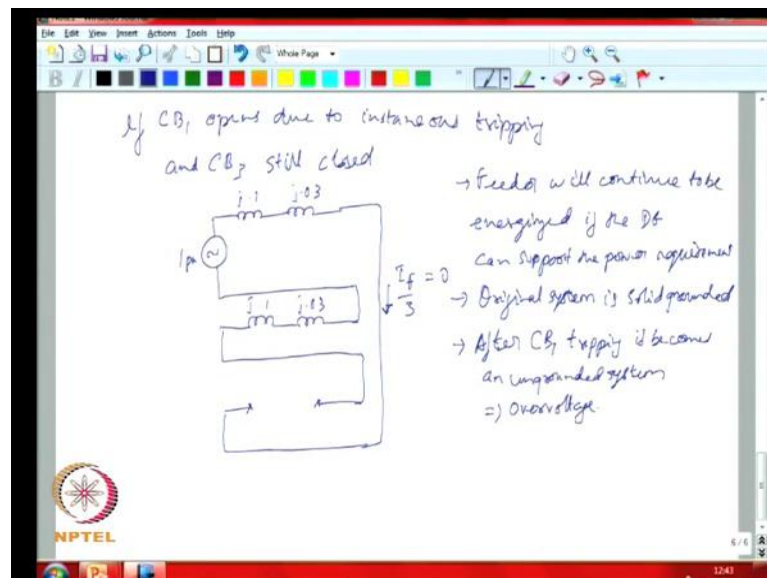 File Edit View Insert Actions Tools Help
Whole Page
B I
If CB1 opens due to instaneous tripping
and CB3 still closed
j.1 j.03
1pu
j.1 j.03
If/3 = 0
→ Feeder will continue to be
energized if the DG
can support the power requirement
→ Original system is solid grounded
→ After CB1 tripping it becomes
an ungrounded system
=> Overvoltage.
NPTEL
6/6
12:43